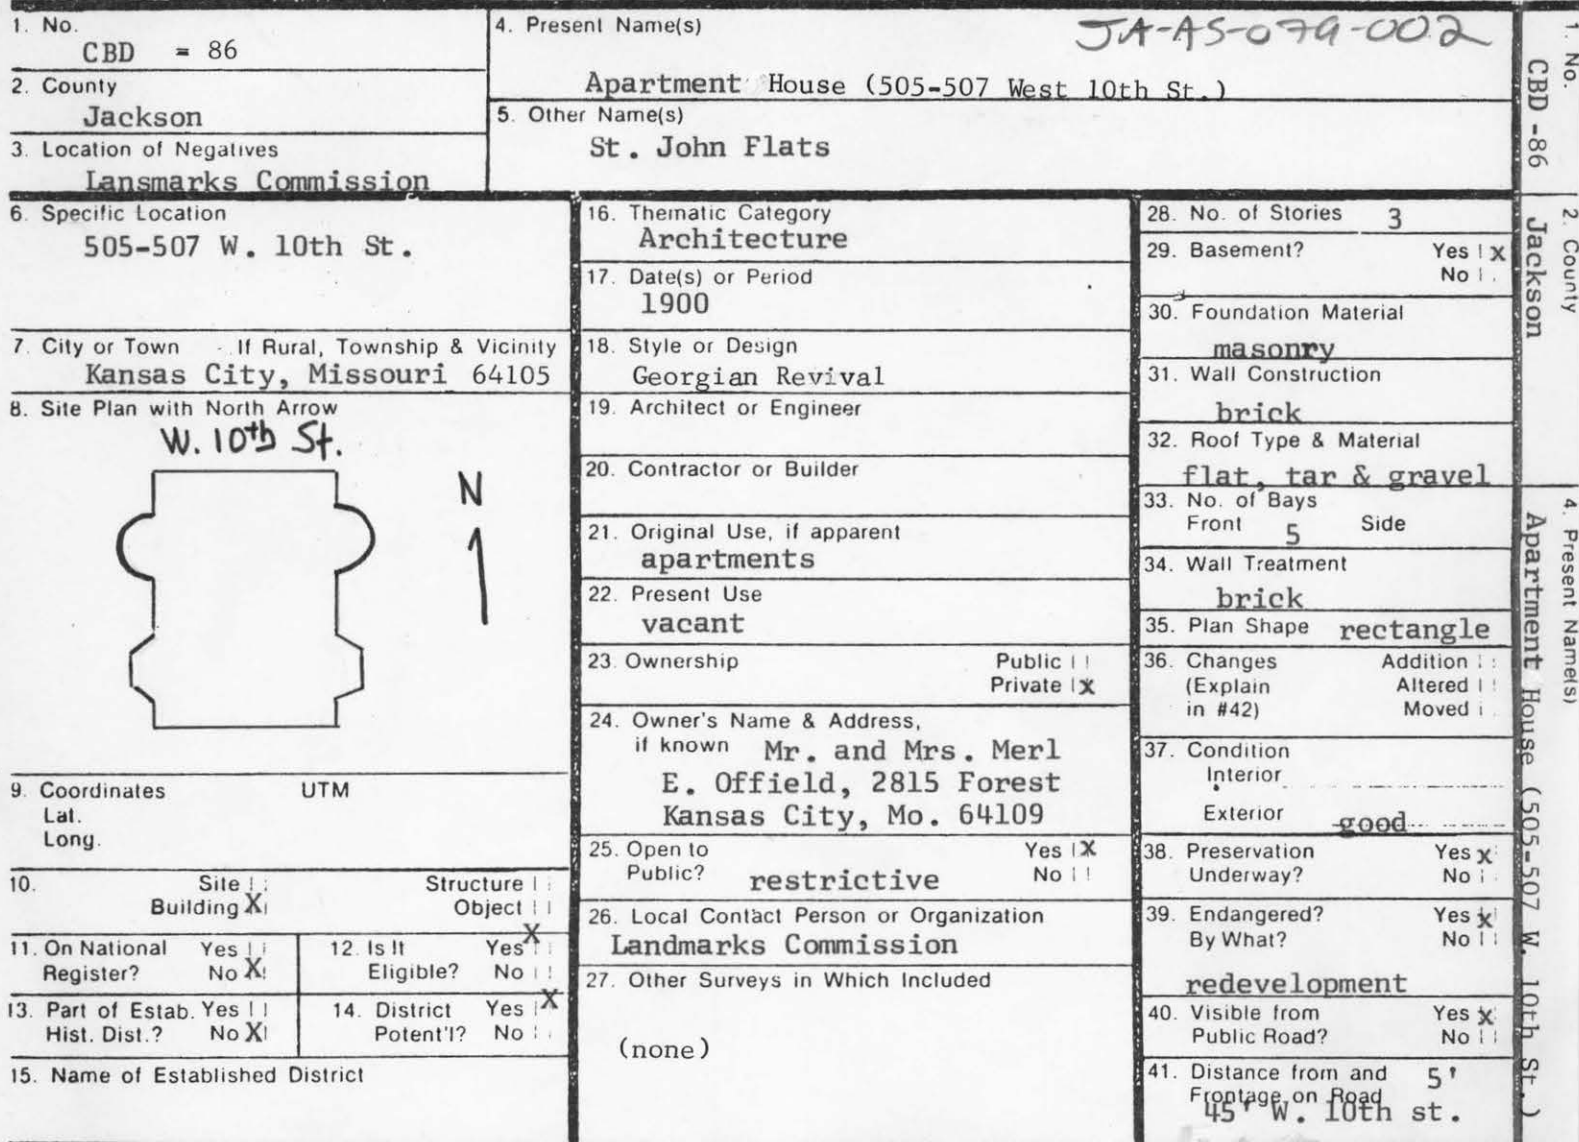 1. No.
CBD = 86
2. County
Jackson
3. Location of Negatives
Lansmarks Commission
4. Present Name(s)
JA-AS-079-002
Apartment House (505-507 West 10th St.)
5. Other Name(s)
St. John Flats
6. Specific Location
505-507 W. 10th St.
7. City or Town If Rural, Township & Vicinity
Kansas City, Missouri 64105
8. Site Plan with North Arrow
W. 10th St.
N
9. Coordinates UTM
Lat.
Long.
10. Site Structure
Building X Object
11. On National Yes
Register? No X
12. Is It Yes X
Eligible? No
13. Part of Estab. Yes
Hist. Dist.? No X
14. District Yes X
Potent'l? No
15. Name of Established District
16. Thematic Category
Architecture
17. Date(s) or Period
1900
18. Style or Design
Georgian Revival
19. Architect or Engineer
20. Contractor or Builder
21. Original Use, if apparent
apartments
22. Present Use
vacant
23. Ownership Public
Private X
24. Owner's Name & Address,
if known Mr. and Mrs. Merl
E. Offield, 2815 Forest
Kansas City, Mo. 64109
25. Open to Yes X
Public? restrictive No
26. Local Contact Person or Organization
Landmarks Commission
27. Other Surveys in Which Included
(none)
28. No. of Stories 3
29. Basement? Yes X
No
30. Foundation Material
masonry
31. Wall Construction
brick
32. Roof Type & Material
flat, tar & gravel
33. No. of Bays
Front 5 Side
34. Wall Treatment
brick
35. Plan Shape rectangle
36. Changes Addition
(Explain Altered
in #42) Moved
37. Condition
Interior
Exterior good
38. Preservation Yes X
Underway? No
39. Endangered? Yes X
By What? No
redevelopment
40. Visible from Yes X
Public Road? No
41. Distance from and 5'
Frontage on Road
45' W. 10th st.
1. No.
CBD -86
2. County
Jackson
4. Present Name(s)
Apartment House (505-507 W. 10th St.)